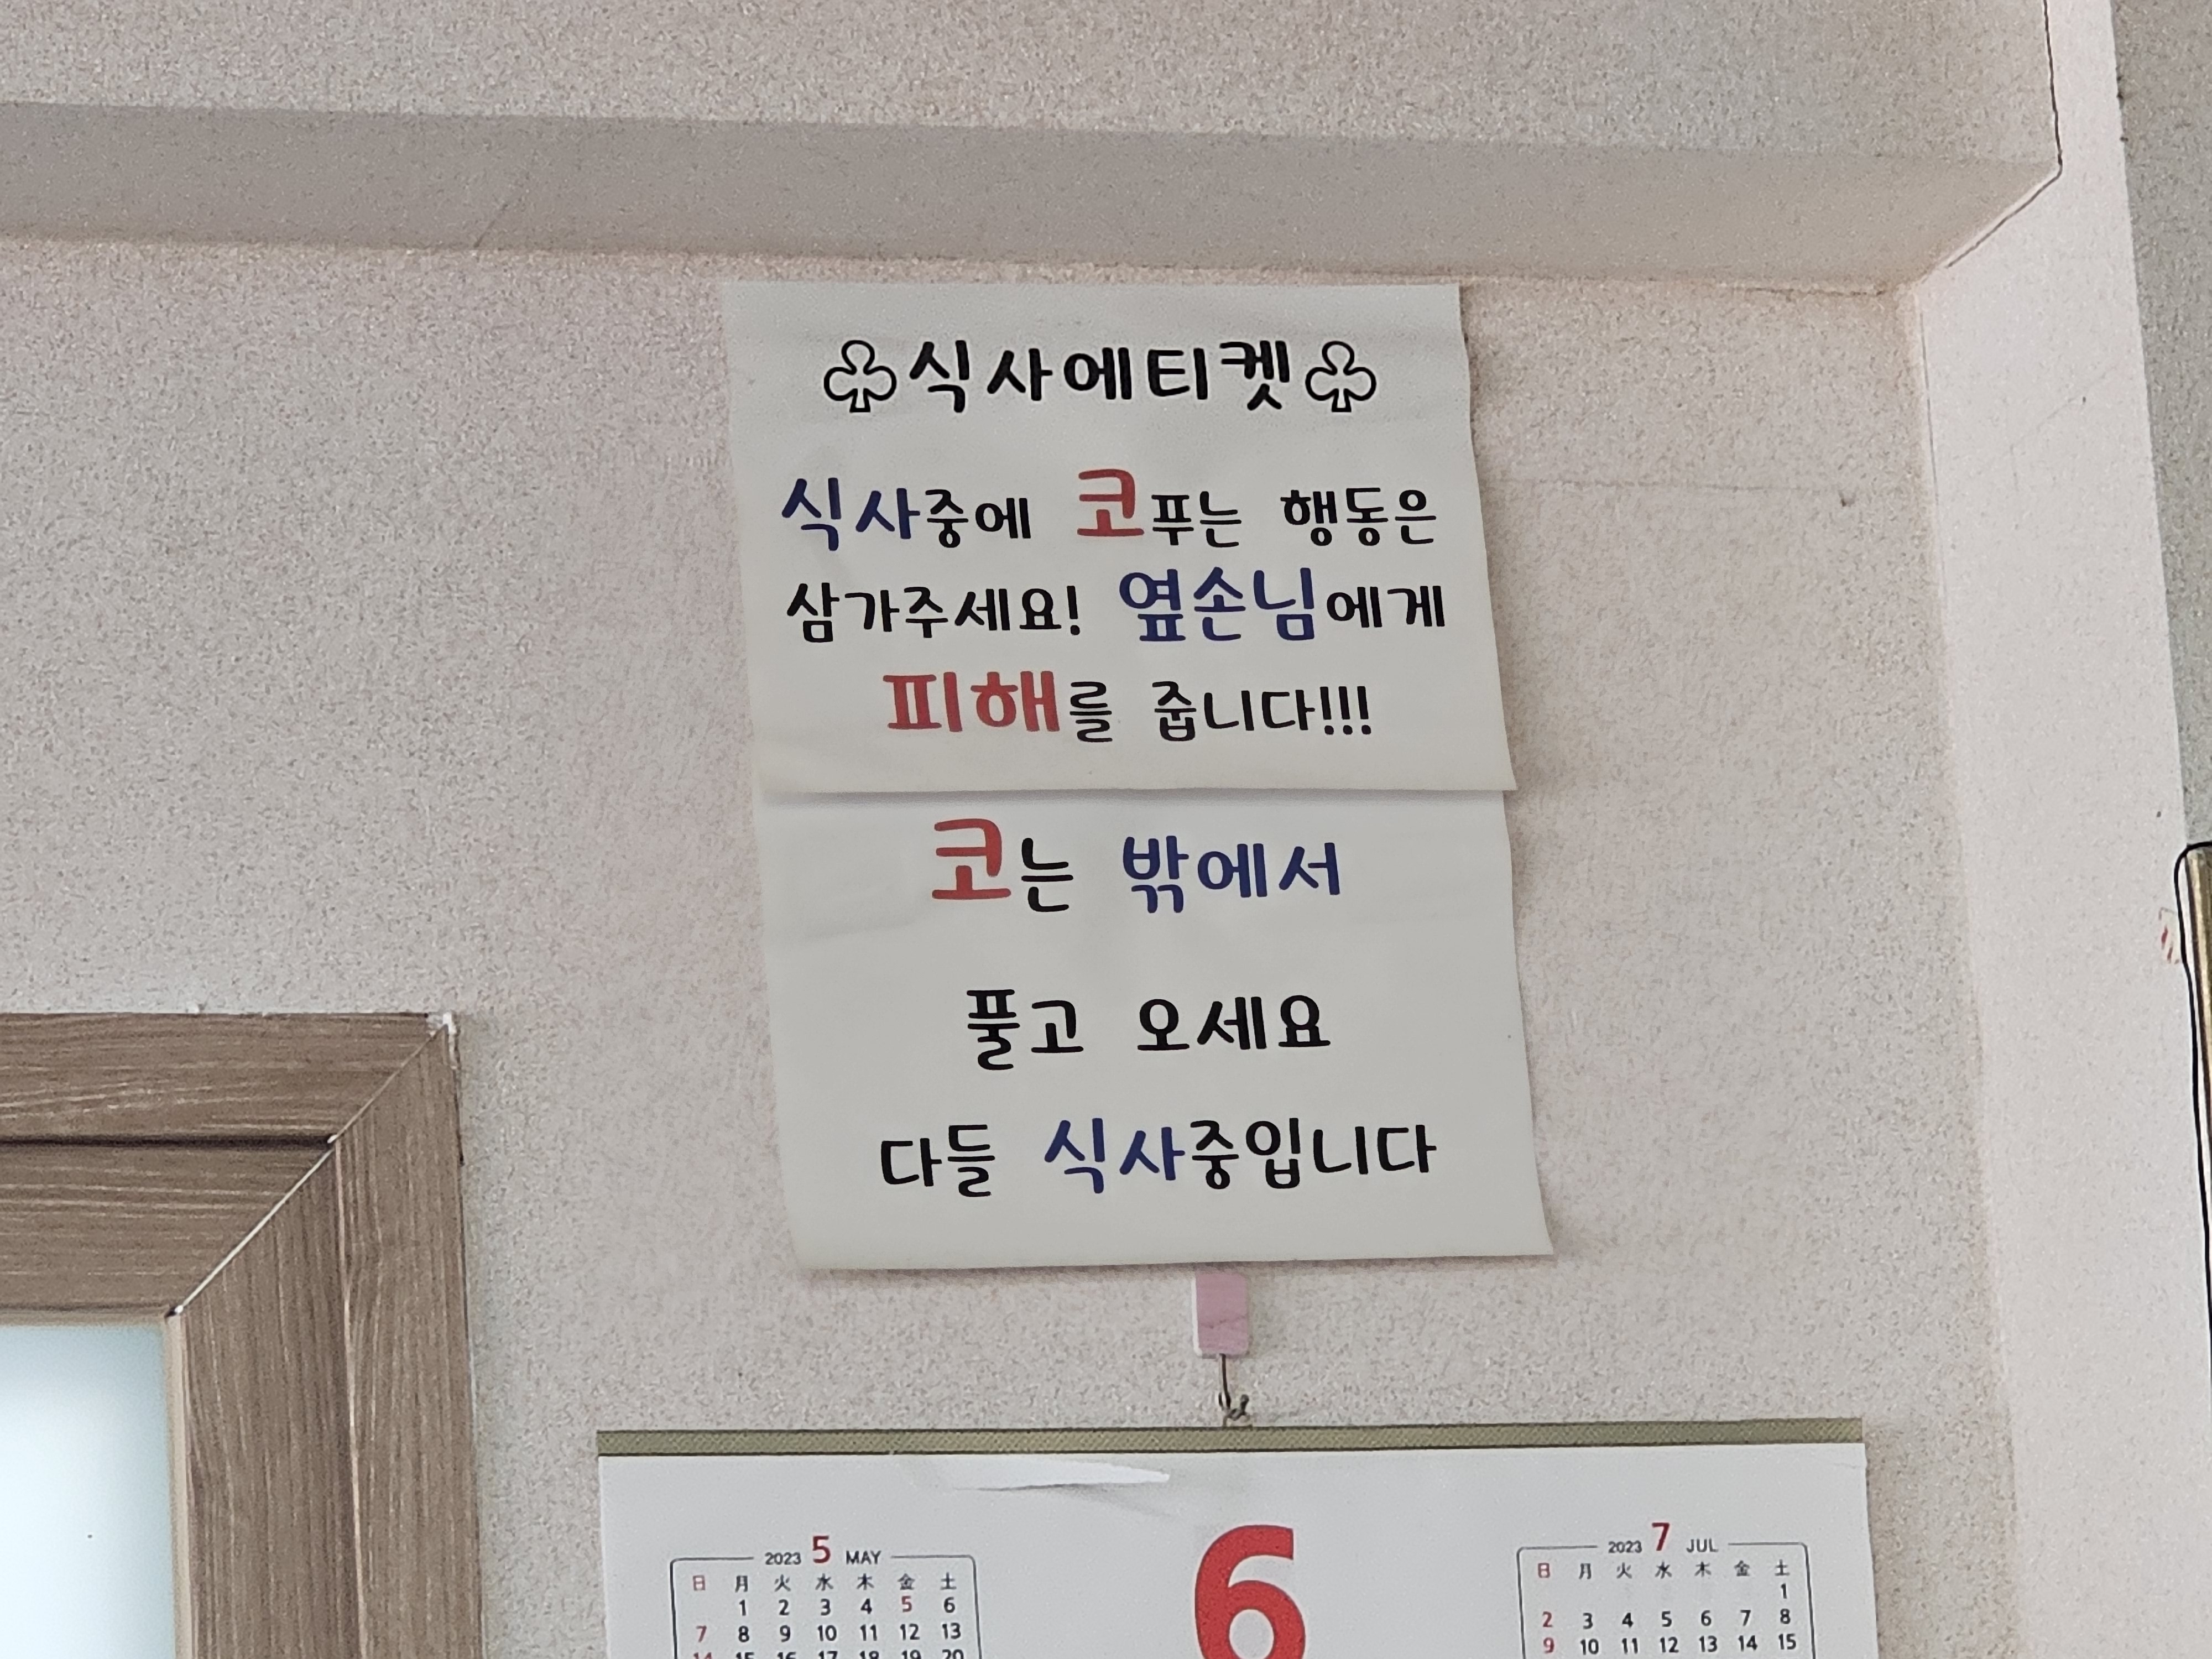 ♧식사에티켓♧
식사중에 코푸는 행동은
삼가주세요! 옆손님에게
피해를 줍니다!!!
코는 밖에서
풀고 오세요
다들 식사중입니다
2023 5 MAY
日 月 火 水 木 金 土
1 2 3 4 5 6
7 8 9 10 11 12 13
14 15 16 17 18 19 20
6
2023 7 JUL
日 月 火 水 木 金 土
1
2 3 4 5 6 7 8
9 10 11 12 13 14 15